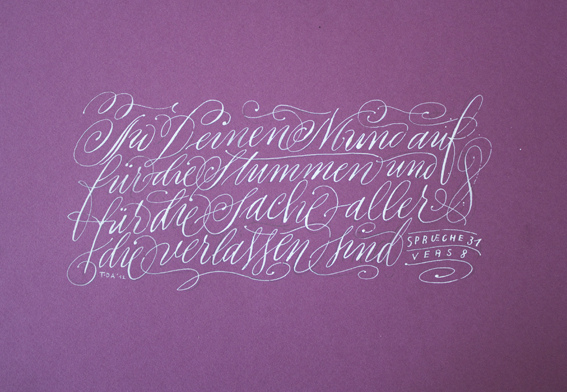 Tu Deinen Mund auf
für die Stummen und
für die Sache aller
die verlassen sind
SPRUECHE 31
VERS 8